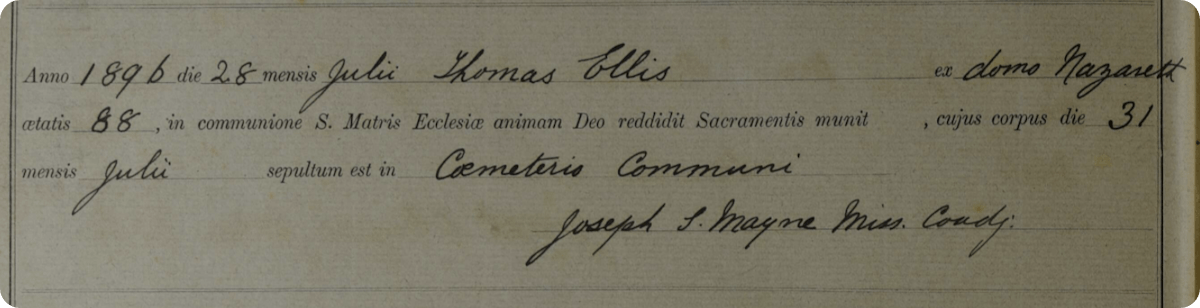 Anno 1896 die 28 mensis Julii Thomas Ellis ex domo Nazareth
ætatis 88, in communione S. Matris Ecclesiæ animam Deo reddidit Sacramentis munit , cujus corpus die 31
mensis Julii sepultum est in Cœmeterio Communi
Joseph S. Mayne Miss. Coadj.